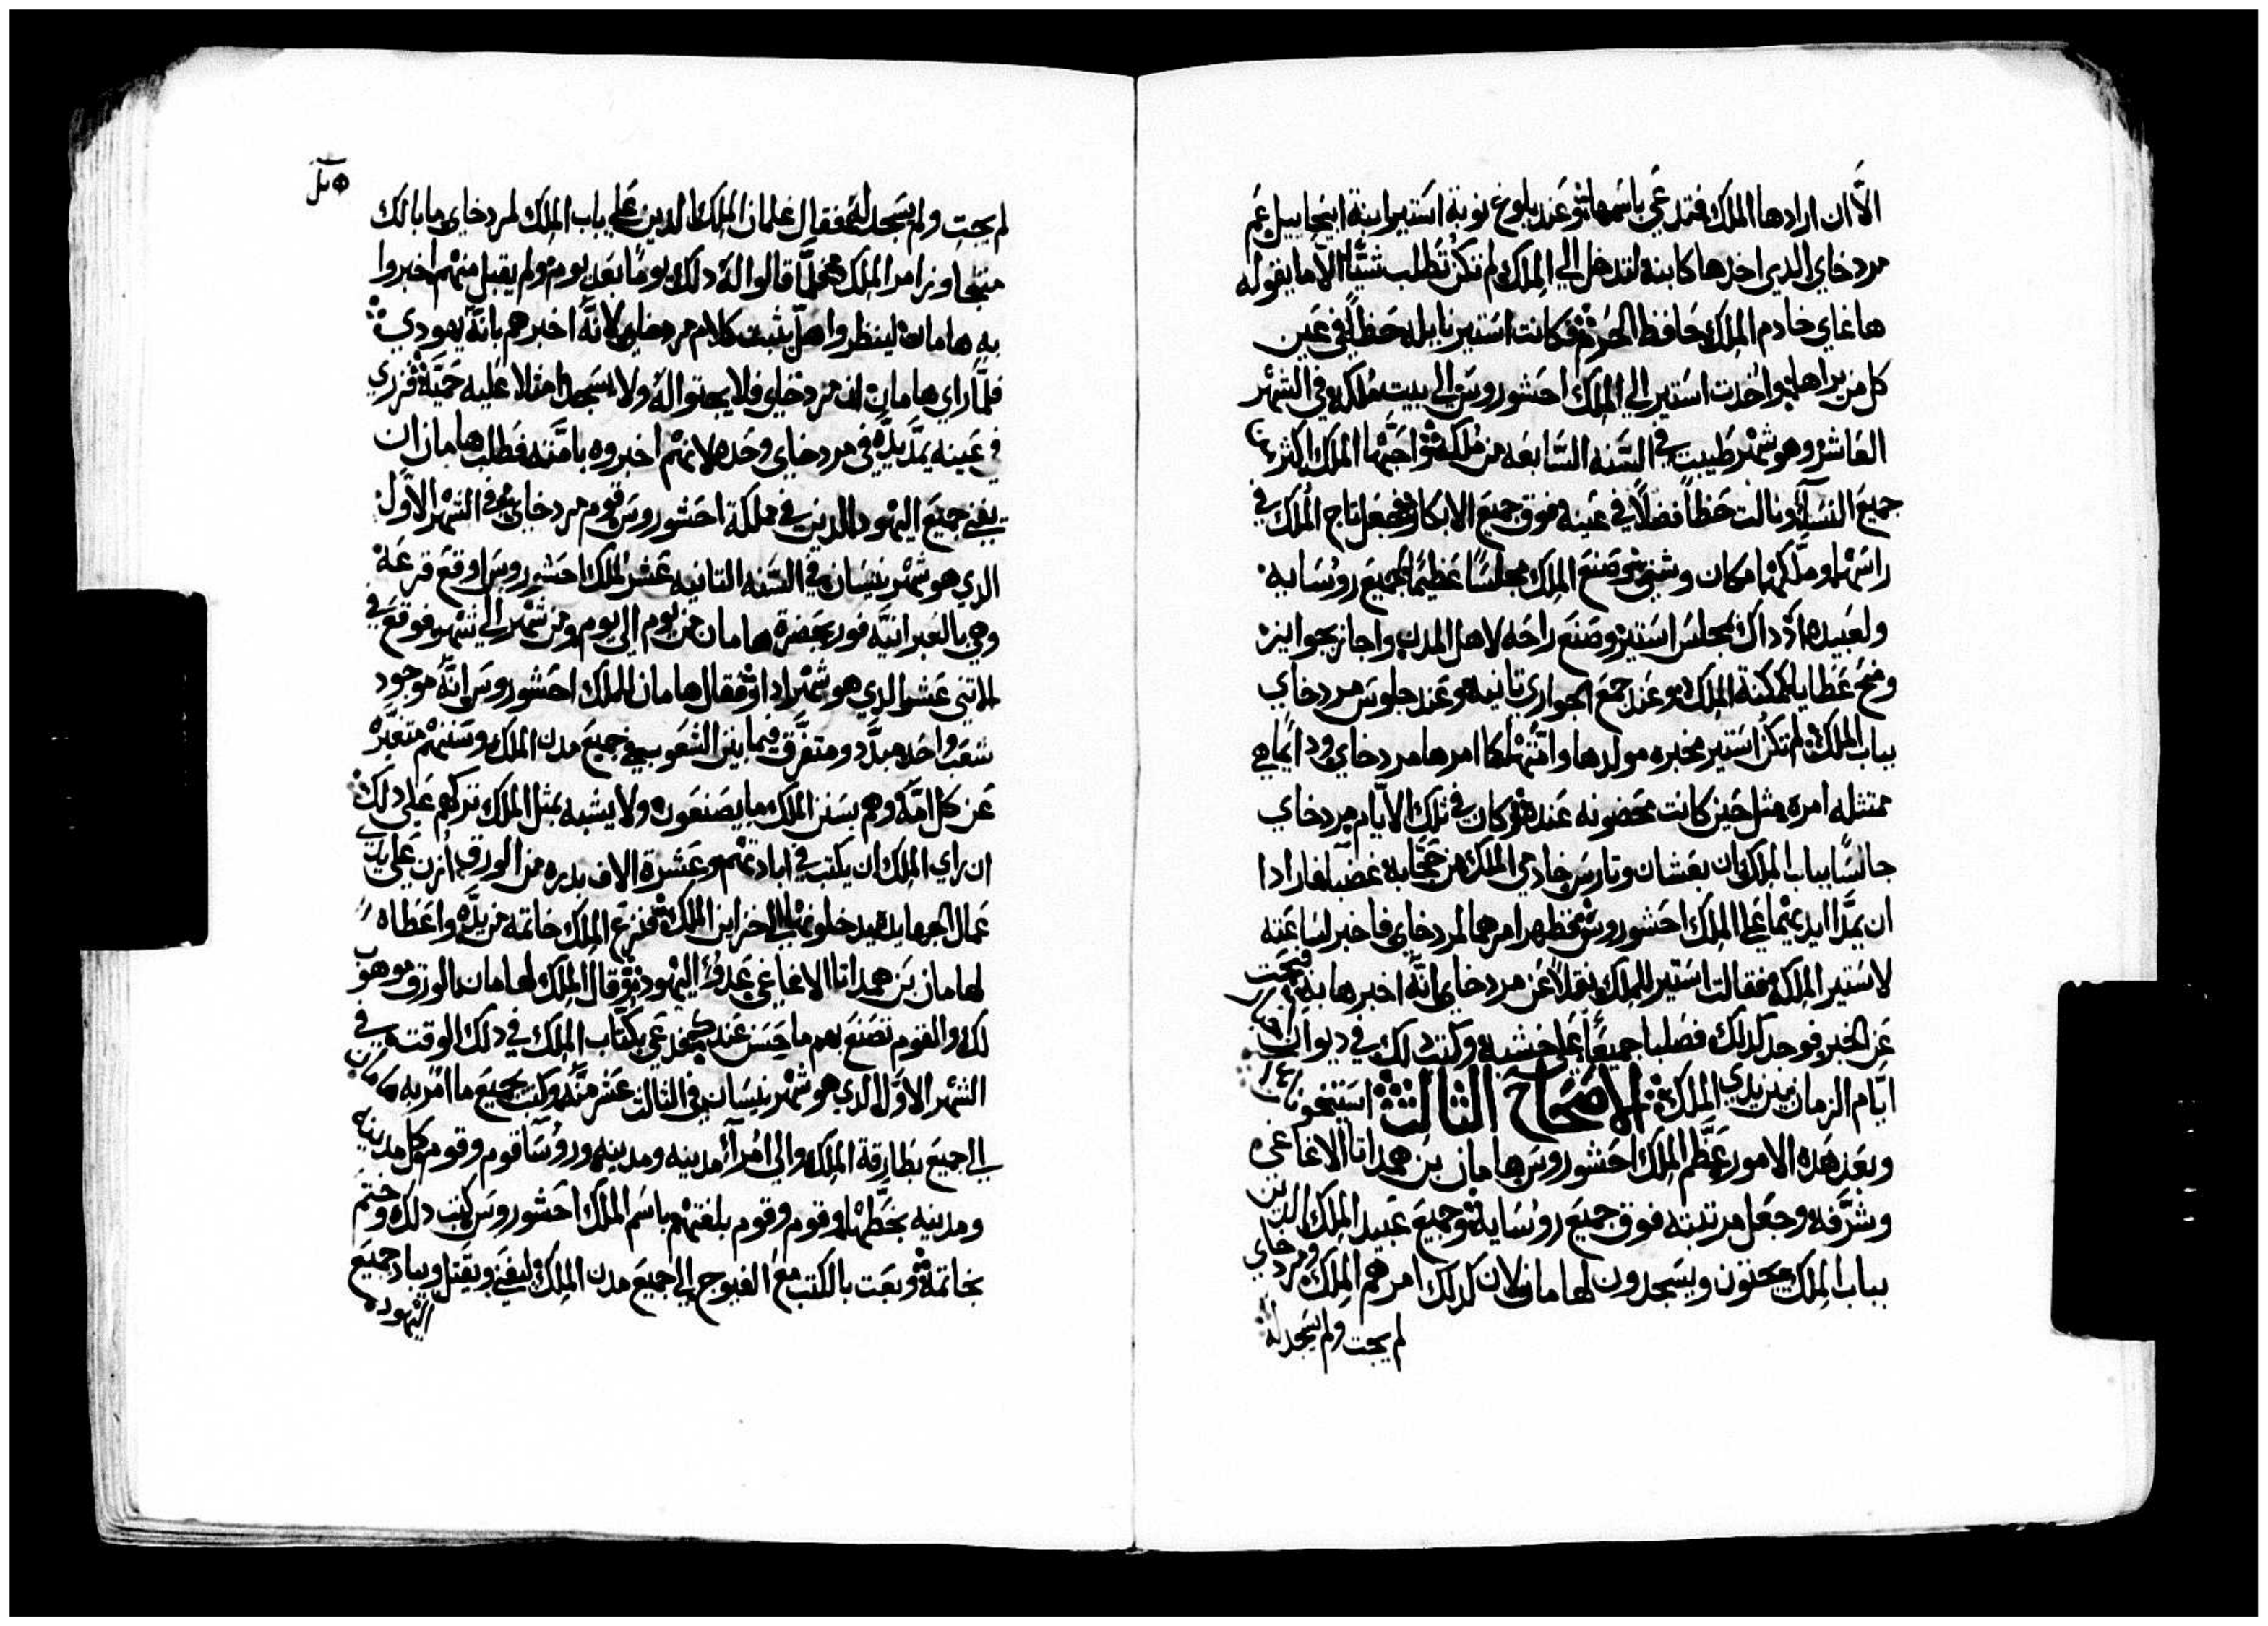 الّا ان ارادها الملك فتدعي باسمها وعند بلوغ نوبة استير ابنة ابيحاييل عم
مردخاي الذي اخدها كابنه لتدخل الي الملك لم تكن تطلب شيًا الا ما يقوله
هاغاي خادم الملك حافظ الحرم وكانت استير نايله حظًا في عين
كل من يراها واخدت استير الي الملك احشوروس الي بيت ملكه في الشهر
العاشر وهو شهر طيبت في السنه السابعه من ملكه واحبها الملك اكثر من
جميع النسآء ونالت حظاً فضلًا في عينه فوق جميع الابكار وجعل تاج الملك في
راسها وملكها مكان وشتي وصنع الملك مجلسًا عظيمًا لجميع روسايه
ولعبيده اذ داك مجلس استير وصنع راحه لاهل المدن واجاز بجوايز
ومنح عطايا كمكنة الملك وعند جمع الجواري تانيه وعند جلوس مردخاي
بباب الملك لم تكن استير مخبره مولدها وامتها كما امرها مردخاي ودايما هي
ممتثله امره مثل حين كانت محضونه عنده وكان في تلك الايام مردخاي
جالسًا بباب الملك ان بغتان وتارس خادمي الملك من حجابه غضبا فارادا
ان يمدا ايديهما علي الملك احشوروس فظهر امرهما لمردخاي فاخبر لساعته
لاستير الملكه فقالت استير للملك نقلًا عن مردخاي انّه اخبرها به ففحت
عن الخبر فوجد كدلك فصلبا جميعًا علي خشبه وكتب دلك في ديوان
ايّام الزمان بين يدي الملك الاصحاح الثالث
وبعد هده الامور عظّم الملك احشوروس هامان بن همداتا الاغاغي
وشرّفه وجعل مرتبته فوق جميع روسايه وجميع عبيد الملك الدين
بباب الملك يجتون ويسجدون لهامان لان كدلك امرهم الملك ومردخاي
لم يجت ولم يسجد له
لم يجت ولم يسجد له فقال غلمان الملك الدين علي باب الملك لمردخاي ما بالك
متجاوز امر الملك فلمّا قالوا له دلك يومًا بعد يوم ولم يقبل منهم اخبروا
به هامان لينظروا هل يثبت كلام مردخاي لانّه اخبرهم بانّه يهودي
فلمّا راي هامان ان مردخاي فلا يجتوا له ولا يسجد امتلا عليه حميّة فزري
في عينه يمد يده في مردخاي وحده لانهم اخبروه بامّته فطلب هامان ان
يفني جميع اليهود الدين في مملكة احشوروس قوم مردخاي في الشهر الاول
الدي هو شهر نيسان في السنه التانيه عشر للملك احشوروس اوقع قرعة
وهي بالعبرانيّه فور بحضرة هامان من يوم الي يوم ومن شهر الي شهر فوقع في
الاتني عشر الدي هو شهر ادار فقال هامان للملك احشوروس انّه موجود
شعب واحد مبدّد ومتفرّق فيما بين الشعوب في جميع مدن الملك وسننهم متغيّرة
عن كل امّه وهم بسنن الملك ما يصنعون ولا يشبه بمثل الملك تركهم علي دلك
ان راي الملك ان يكتب في ابادتهم وعشرة الاف بدره من الورق ازن علي يدي
عمال الجهابده يدخلونها الي خزاين الملك فنزع الملك خاتمه من يده واعطاه
لهامان بن همداتا الاغاغي عدو اليهود وقال الملك لهامان الورق موهوب
لك والقوم تصنع بهم ما حسن عندك فدعي بكتاب الملك في دلك الوقت في
الشهر الاول الدي هو شهر نيسان في الثالت عشر منه وكتب بجميع ما امر به هامان
الي جميع بطارقة الملك والي امرآء مدينه ومدينه وروسآ قوم وقوم وكل مدينه
ومدينه بخطها وقوم وقوم بلغتهم باسم الملك احشوروس كتب دلك وختم
بخاتمه وبعت بالكتب مع الفيوج الي جميع مدن الملك ليفني ويقتل ويباد جميع
اليهود